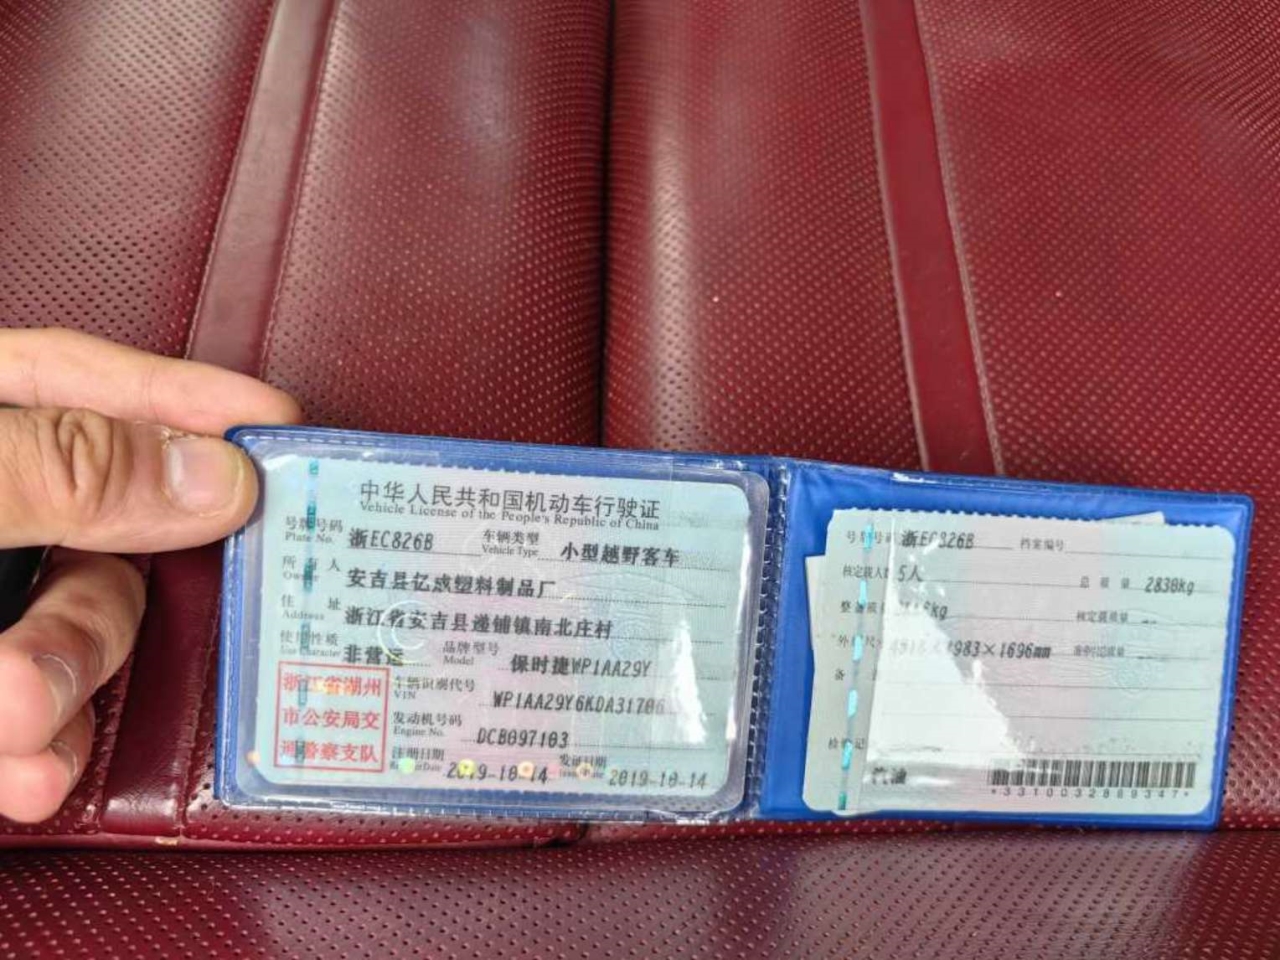 中华人民共和国机动车行驶证
Vehicle License of the People's Republic of China
号牌号码 浙EC826B 车辆类型 小型越野客车
Plate No. Vehicle Type
所有人 安吉县亿成塑料制品厂
Owner
住址 浙江省安吉县递铺镇南北庄村
Address
使用性质 非营运 品牌型号 保时捷WP1AA29Y
Use Character Model
浙江省湖州
市公安局交
通警察支队
车辆识别代号 WP1AA29Y6KDA31706
VIN
发动机号码 DCB097103
Engine No.
注册日期 2019-10-14 发证日期 2019-10-14
Register Date Issue Date
号牌号码 浙EC826B 档案编号
核定载人数 5人 总质量 2830kg
整备质量 kg 核定载质量 --
外廓尺寸 ×1983×1696mm 准牵引总质量
备
检验记
汽油